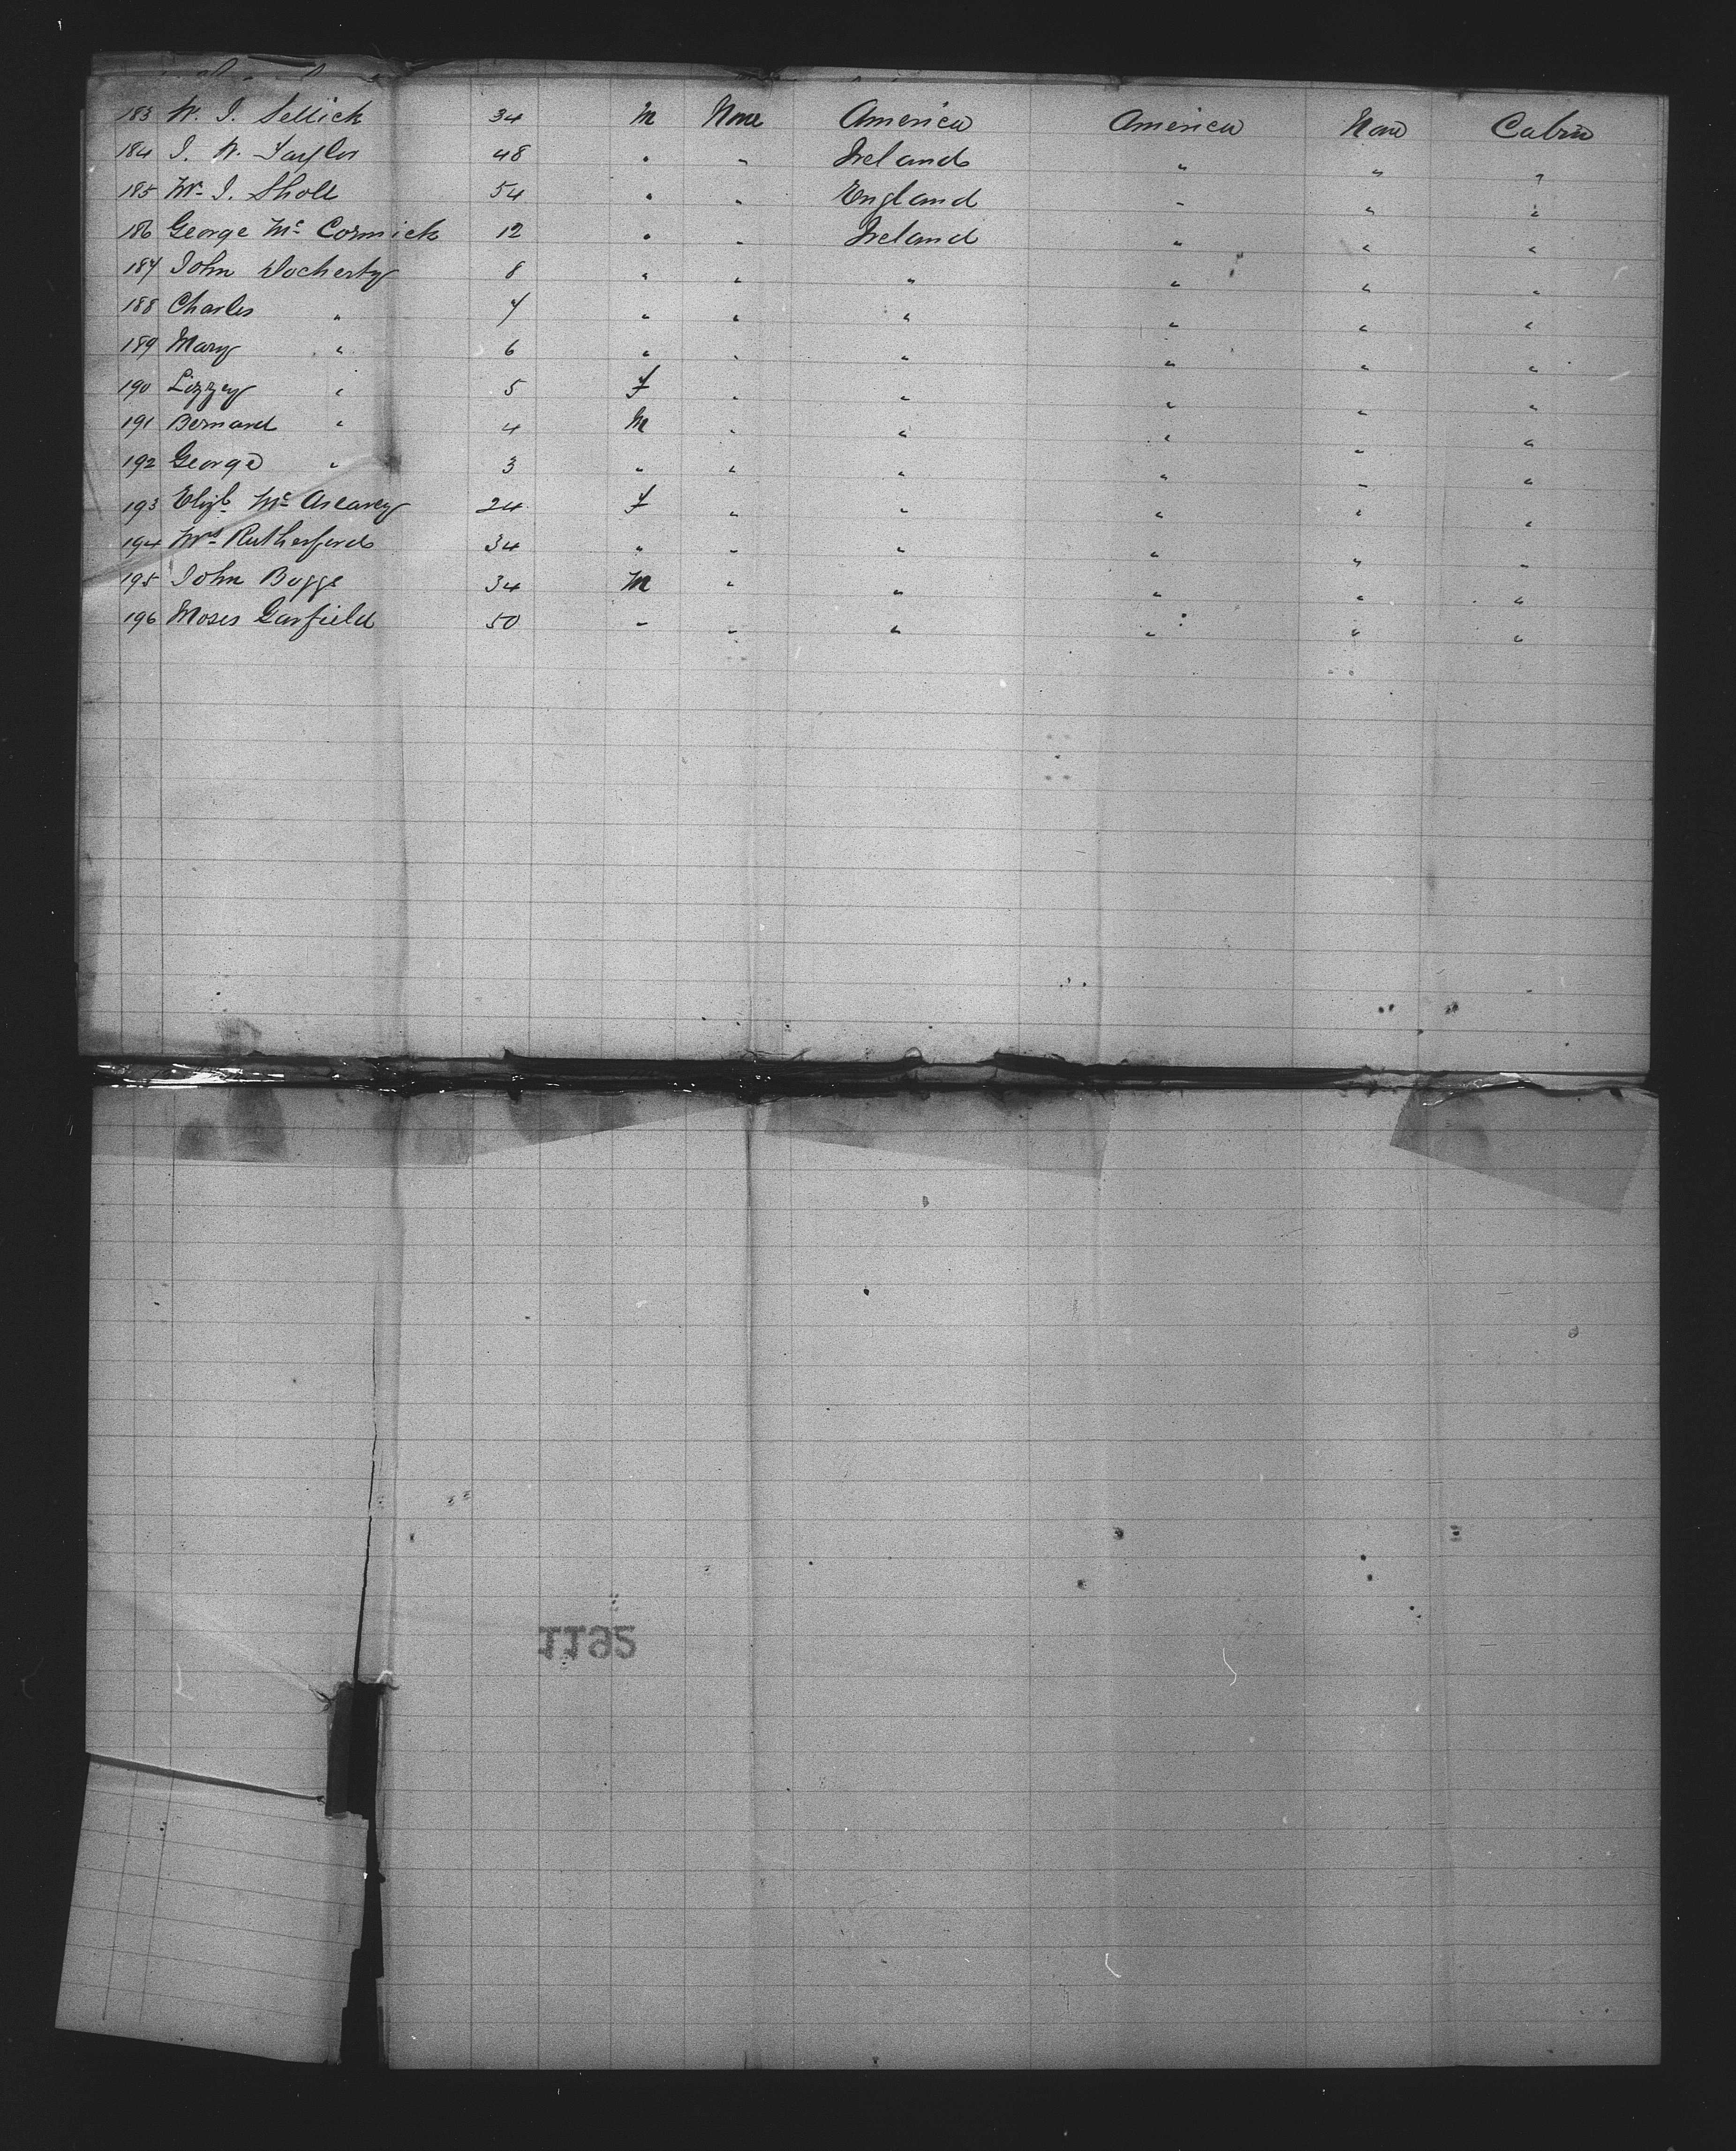 183 W. J. Sellick 34 M None America America None Cabin
184 J. W. Taylor 48 " " Ireland " " "
185 Wm J. Sholl 54 " " England " " "
186 George Mc Cormick 12 " " Ireland " " "
187 John Docherty 8 " " " " " "
188 Charles " 7 " " " " " "
189 Mary " 6 " " " " " "
190 Lizzey " 5 F " " " " "
191 Bernard " 4 M " " " " "
192 George " 3 " " " " " "
193 Elizb Mc 24 F " " " " "
194 Mrs Rutherford 34 " " " " " "
195 John Boggs 34 M " " " " "
196 Moses Garfield 50 " " " " " "
1195